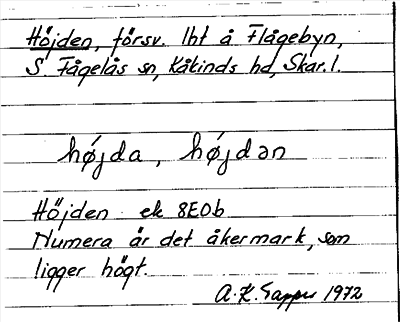 Höjden, försv. lht å Flågebyn,
S. Fågelås sn, Kåkinds hd, Skar. l.
højda, højdən
Höjden ek 8E0b
Numera är det åkermark, som
ligger högt.
A. K. 1972